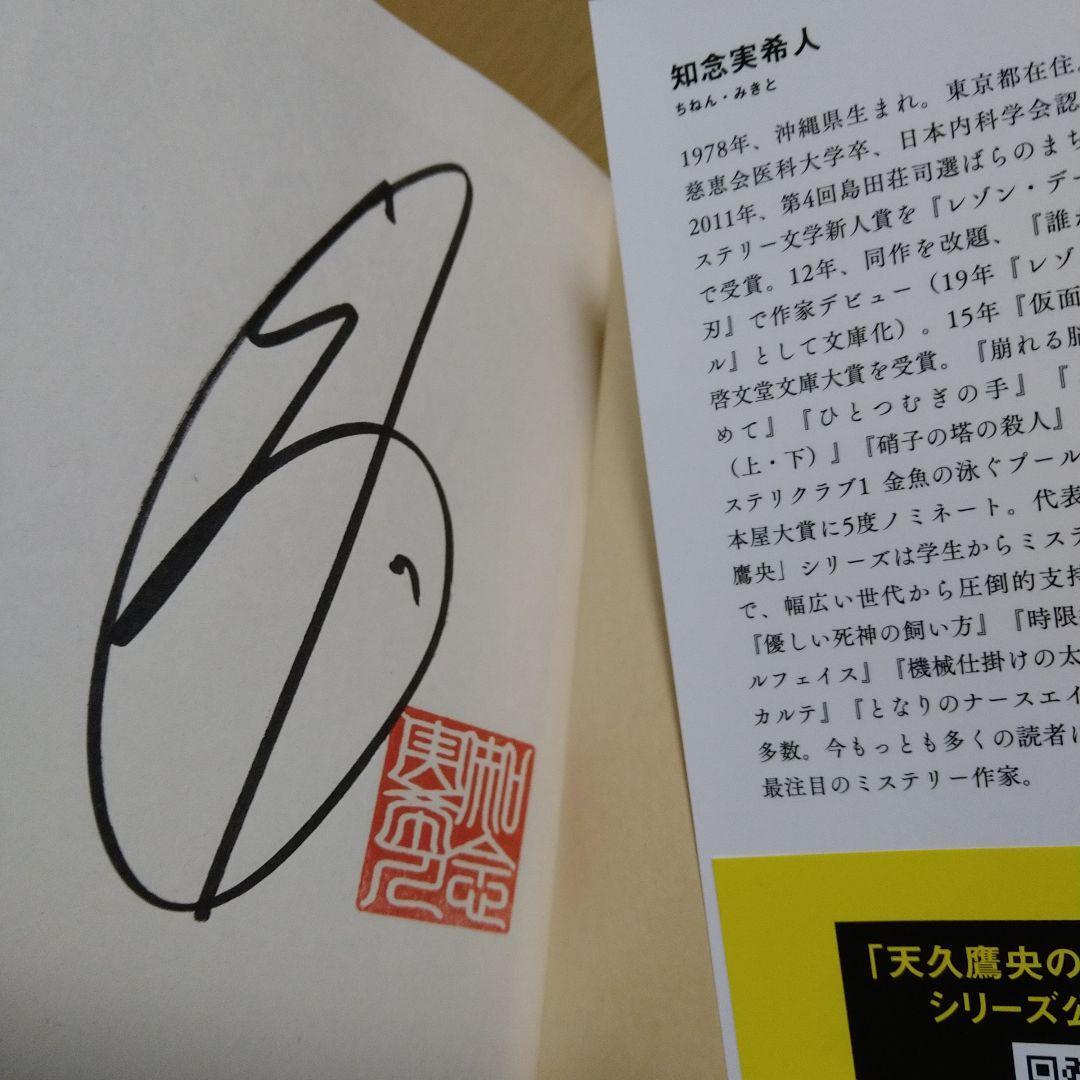 知念実希人
ちねん・みきと
1978年、沖縄県生まれ。東京都在住。
慈恵会医科大学卒、日本内科学会認
2011年、第4回島田荘司選ばらのまち
ステリー文学新人賞を『レゾン・デー
で受賞。12年、同作を改題、『誰か
刃』で作家デビュー（19年『レゾ
ル』として文庫化）。15年『仮面
啓文堂文庫大賞を受賞。『崩れる脳
めて』『ひとつむぎの手』『
（上・下）』『硝子の塔の殺人』
ステリクラブ1 金魚の泳ぐプール
本屋大賞に5度ノミネート。代表
鷹央」シリーズは学生からミステ
で、幅広い世代から圧倒的支持
『優しい死神の飼い方』『時限
ルフェイス』『機械仕掛けの太
カルテ』『となりのナースエイ
多数。今もっとも多くの読者に
最注目のミステリー作家。
知念
実希人
「天久鷹央の
シリーズ公